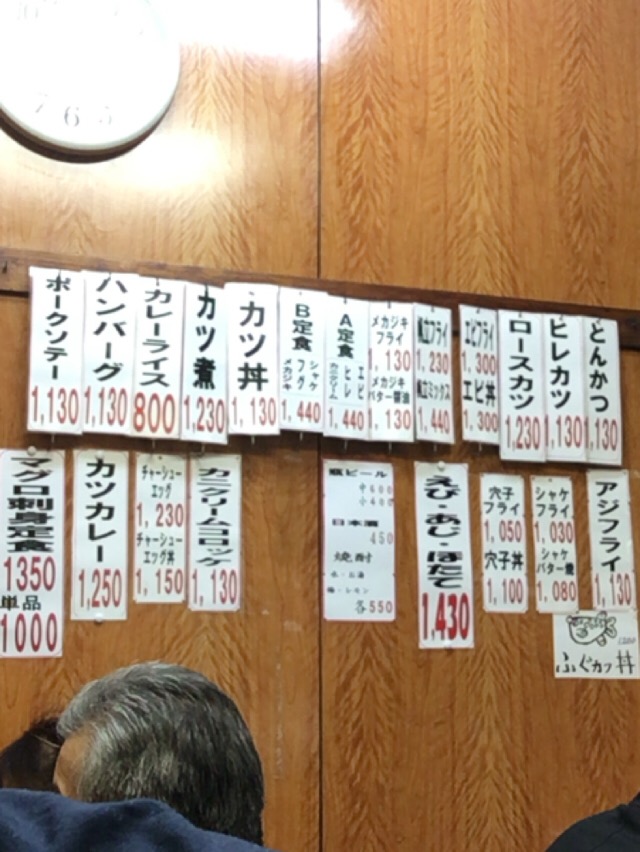 とんかつ
1,130
ヒレカツ
1,130
ロースカツ
1,230
エビフライ
1,300
エビ丼
1,300
帆立フライ
1,230
帆立ミックス
1,440
メカジキ
フライ
1,130
メカジキ
バター醤油
1,130
A定食
エビ
ヒレ
カニクリーム
1,440
B定食
シャケ
フグ
メカジキ
1,440
カツ丼
1,130
カツ煮
1,230
カレーライス
800
ハンバーグ
1,130
ポークソテー
1,130
アジフライ
1,130
シャケ
フライ
1,030
シャケ
バター焼
1,080
穴子
フライ
1,050
穴子丼
1,100
えび・あじ・ほたて
1,430
瓶ビール
中600
小400
日本酒
450
焼酎
水・お湯
梅・レモン
各550
カニクリームコロッケ
1,130
チャーシュー
エッグ
1,230
チャーシュー
エッグ丼
1,150
カツカレー
1,250
マグロ刺身定食
1350
単品
1000
ふぐカツ丼
7 6 5